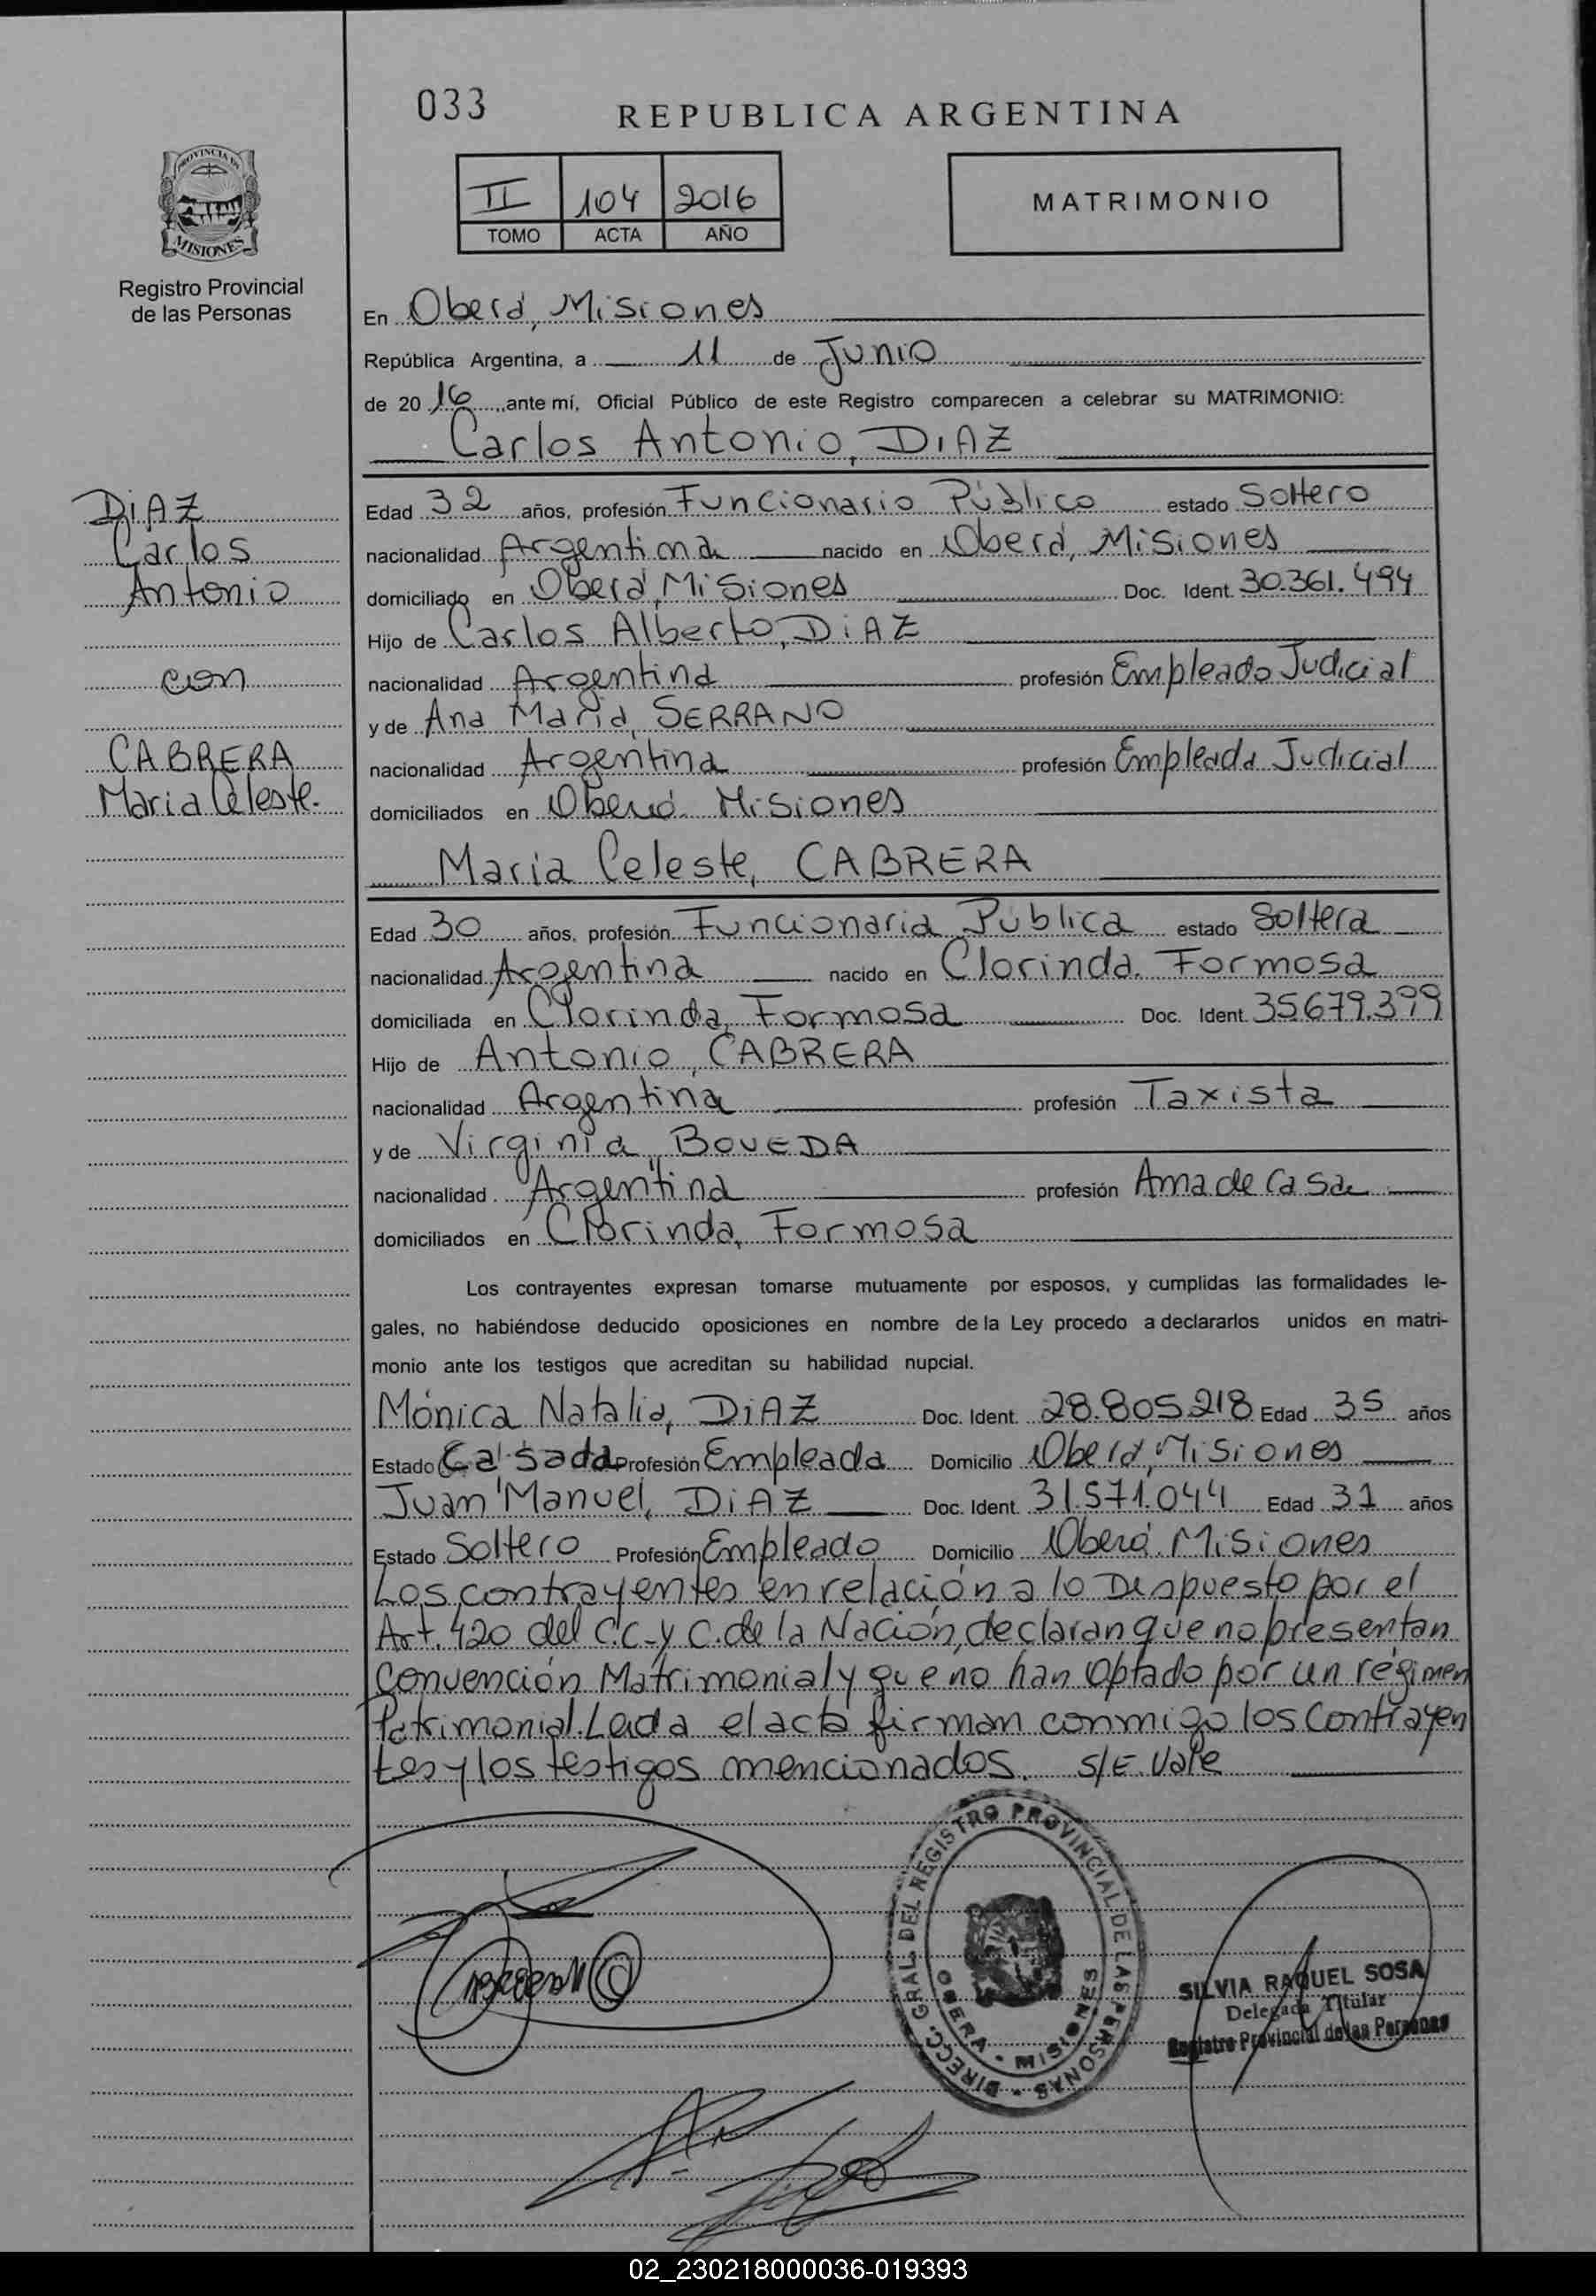 033
REPUBLICA ARGENTINA
II 104 2016
TOMO ACTA AÑO
MATRIMONIO
PROVINCIA DE
MISIONES
Registro Provincial
de las Personas
En Oberá, Misiones
República Argentina, a 11 de Junio
de 2016, ante mí, Oficial Público de este Registro comparecen a celebrar su MATRIMONIO:
Carlos Antonio, DIAZ
DIAZ
Carlos
Antonio
con
CABRERA
Maria Celeste.
Edad 32 años, profesión Funcionario Público estado Soltero
nacionalidad Argentina nacido en Oberá, Misiones
domiciliado en Oberá, Misiones Doc. Ident. 30.361.494
Hijo de Carlos Alberto, DiAZ
nacionalidad Argentina profesión Empleado Judicial
y de Ana Maria, SERRANO
nacionalidad Argentina profesión Empleada Judicial
domiciliados en Oberá. Misiones
Maria Celeste, CABRERA
Edad 30 años, profesión Funcionaria Publica estado Soltera
nacionalidad Argentina nacido en Clorinda. Formosa
domiciliada en Clorinda, Formosa Doc. Ident. 35679.399
Hijo de Antonio, CABRERA
nacionalidad Argentina profesión Taxista
y de Virginia, BOVEDA
nacionalidad Argentina profesión Ama de Casa
domiciliados en Clorinda, Formosa
Los contrayentes expresan tomarse mutuamente por esposos, y cumplidas las formalidades le-
gales, no habiéndose deducido oposiciones en nombre de la Ley procedo a declararlos unidos en matri-
monio ante los testigos que acreditan su habilidad nupcial.
Mónica Natalia, DiAZ Doc. Ident. 28.805.218 Edad 35 años
Estado Casada Profesión Empleada Domicilio Oberá, Misiones
Juan Manuel, DiAZ Doc. Ident. 31.571.044 Edad 31 años
Estado Soltero Profesión Empleado Domicilio Oberá. Misiones
Los contrayentes en relación a lo Dispuesto por el
Art. 420 del C.C. y C. de la Nación, declaran que no presentan
Convención Matrimonial y que no han optado por un régimen
Patrimonial. Leida el acta firman conmigo los Contrayen
tes y los testigos mencionados. S/E. Vale
DIRECC. GRAL. DEL REGISTRO PROVINCIAL DE LAS PERSONAS
OBERA - MISIONES
SILVIA RAQUEL SOSA
Delegada Titular
Registro Provincial de las Personas
02_230218000036-019393